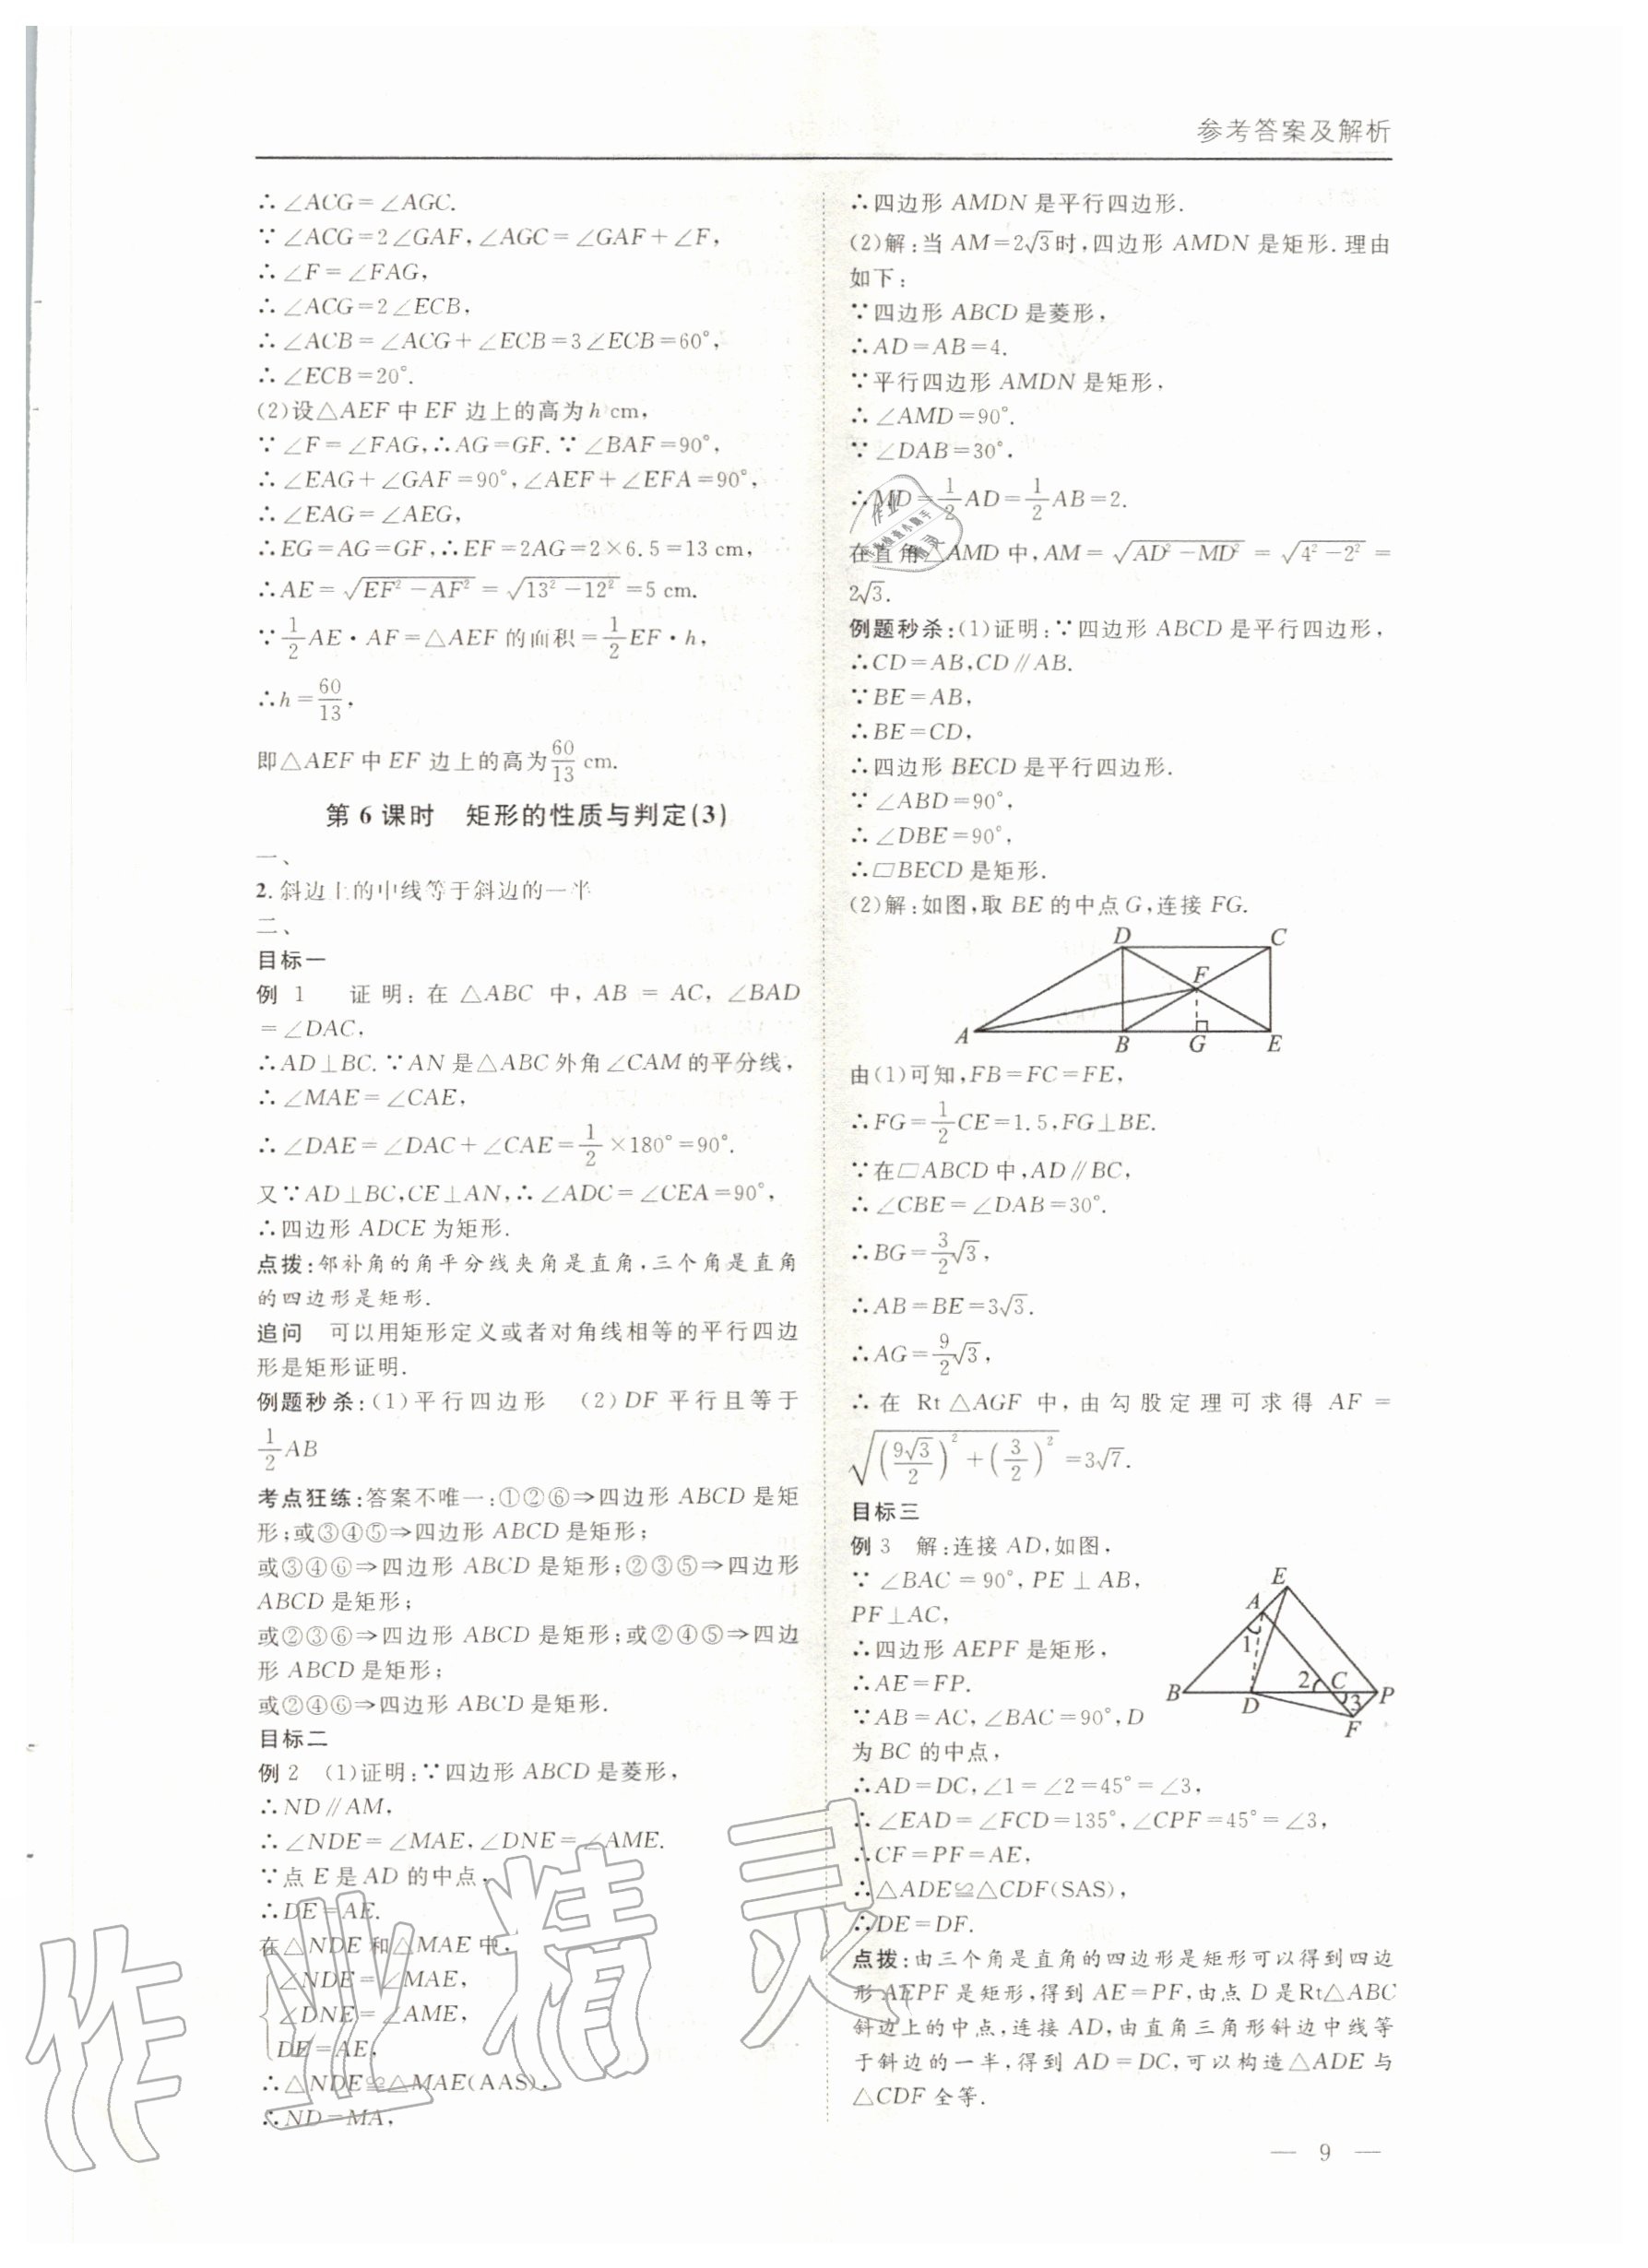 参考答案及解析
∴∠ACG=∠AGC.
∵∠ACG=2∠GAF,∠AGC=∠GAF+∠F,
∴∠F=∠FAG,
∴∠ACG=2∠ECB,
∴∠ACB=∠ACG+∠ECB=3∠ECB=60°,
∴∠ECB=20°.
(2)设△AEF中EF边上的高为h cm,
∵∠F=∠FAG,∴AG=GF.∵∠BAF=90°,
∴∠EAG+∠GAF=90°,∠AEF+∠EFA=90°,
∴∠EAG=∠AEG,
∴EG=AG=GF,∴EF=2AG=2×6.5=13 cm,
∴AE=√(EF²-AF²)=√(13²-12²)=5 cm.
∵1/2 AE·AF=△AEF的面积=1/2 EF·h,
∴h=60/13,
即△AEF中EF边上的高为60/13 cm.
第6课时 矩形的性质与判定(3)
一、
2.斜边上的中线等于斜边的一半
二、
目标一
例1 证明:在△ABC中,AB=AC,∠BAD
=∠DAC,
∴AD⊥BC.∵AN是△ABC外角∠CAM的平分线,
∴∠MAE=∠CAE,
∴∠DAE=∠DAC+∠CAE=1/2×180°=90°.
又∵AD⊥BC,CE⊥AN,∴∠ADC=∠CEA=90°,
∴四边形ADCE为矩形.
点拨:邻补角的角平分线夹角是直角,三个角是直角
的四边形是矩形.
追问 可以用矩形定义或者对角线相等的平行四边
形是矩形证明.
例题秒杀:(1)平行四边形 (2)DF平行且等于
1/2 AB
考点狂练:答案不唯一:①②⑥⇒四边形ABCD是矩
形;或③④⑤⇒四边形ABCD是矩形;
或③④⑥⇒四边形ABCD是矩形;②③⑤⇒四边形
ABCD是矩形;
或②③⑥⇒四边形ABCD是矩形;或②④⑤⇒四边
形ABCD是矩形;
或②④⑥⇒四边形ABCD是矩形.
目标二
例2 (1)证明:∵四边形ABCD是菱形,
∴ND∥AM,
∴∠NDE=∠MAE,∠DNE=∠AME.
∵点E是AD的中点,
∴DE=AE.
在△NDE和△MAE中,
∠NDE=∠MAE,
∠DNE=∠AME,
DE=AE,
∴△NDE≌△MAE(AAS),
∴ND=MA,
∴四边形AMDN是平行四边形.
(2)解:当AM=2√3时,四边形AMDN是矩形.理由
如下:
∵四边形ABCD是菱形,
∴AD=AB=4.
∵平行四边形AMDN是矩形,
∴∠AMD=90°.
∵∠DAB=30°.
∴MD=1/2 AD=1/2 AB=2.
在直角△AMD中,AM=√(AD²-MD²)=√(4²-2²)=
2√3.
例题秒杀:(1)证明:∵四边形ABCD是平行四边形,
∴CD=AB,CD∥AB.
∵BE=AB,
∴BE=CD,
∴四边形BECD是平行四边形.
∵∠ABD=90°,
∴∠DBE=90°,
∴▱BECD是矩形.
(2)解:如图,取BE的中点G,连接FG.
D C
F
A B G E
由(1)可知,FB=FC=FE,
∴FG=1/2 CE=1.5,FG⊥BE.
∵在▱ABCD中,AD∥BC,
∴∠CBE=∠DAB=30°.
∴BG=3/2√3,
∴AB=BE=3√3.
∴AG=9/2√3,
∴在Rt△AGF中,由勾股定理可求得AF=
√((9√3/2)²+(3/2)²)=3√7.
目标三
例3 解:连接AD,如图,
∵∠BAC=90°,PE⊥AB,
PF⊥AC,
∴四边形AEPF是矩形,
∴AE=FP.
∵AB=AC,∠BAC=90°,D
为BC的中点,
E
A
1
2 C
B D 3 P
F
∴AD=DC,∠1=∠2=45°=∠3,
∴∠EAD=∠FCD=135°,∠CPF=45°=∠3,
∴CF=PF=AE,
∴△ADE≌△CDF(SAS),
∴DE=DF.
点拨:由三个角是直角的四边形是矩形可以得到四边
形AEPF是矩形,得到AE=PF,由点D是Rt△ABC
斜边上的中点,连接AD,由直角三角形斜边中线等
于斜边的一半,得到AD=DC,可以构造△ADE与
△CDF全等.
— 9 —
作业精灵